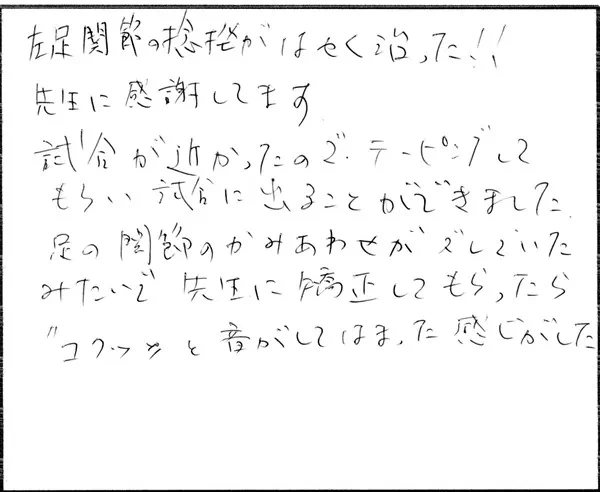 左足関節の捻挫がはやく治った!!
先生に感謝してます
試合が近かったので、テーピングして
もらい試合に出ることができました。
足の関節のかみあわせがズレていた
みたいで先生に矯正してもらったら
"コクッ"と音がしてはまった感じがした